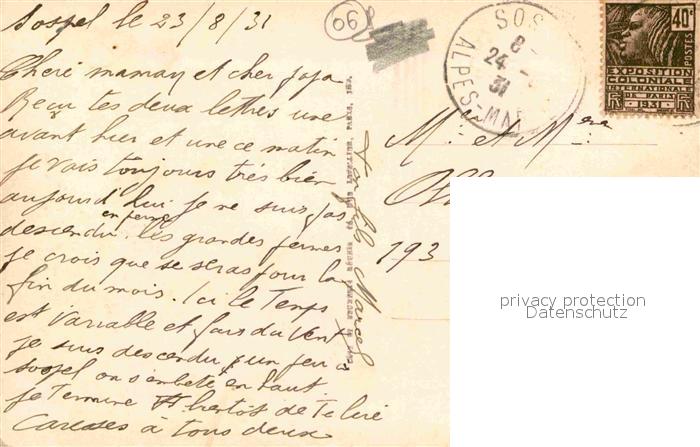 Sospel le 23/8/31
06
Cheré maman et cher papa
Reçu tes deux lettres une
avant hier et une ce matin
je vais toujours très bien
aujourd'hui je ne suis pas
en perme
descendu. les grandes permes
je crois que se seras pour la
fin du mois. Ici le Temps
est variable et fais du vent
je suis descendu un peu a
sospel on s'embete en haut
je termine bientôt de te lire
Caresses à tous deux
Ton fils Marcel
SOS
8
24
31
ALPES-MAR
40c
POSTES
EXPOSITION
COLONIALE
INTERNATIONALE
DE PARIS
1931
Mr et Mme
193
privacy protection
Datenschutz